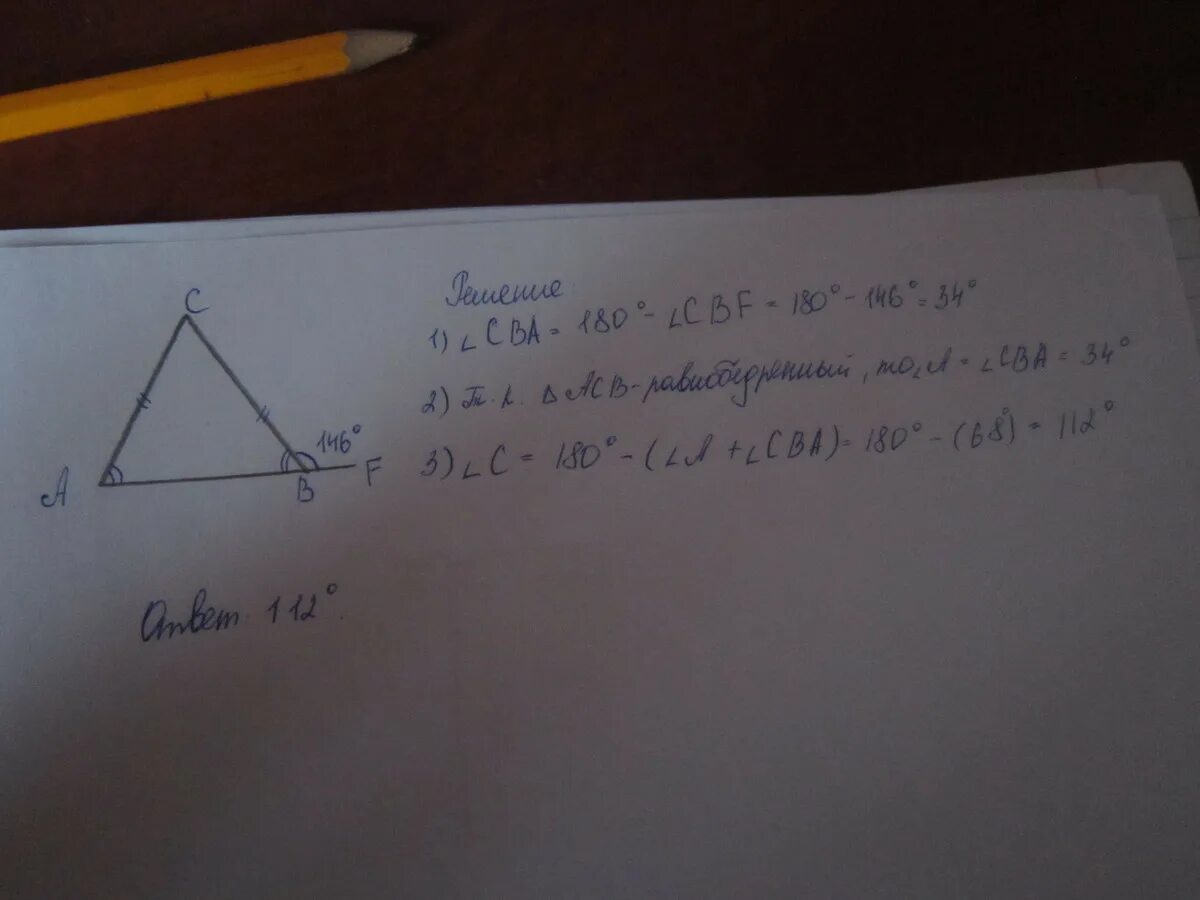 C
A
B
F
146°
Решение
1) ∠CBA = 180° - ∠CBF = 180° - 146° = 34°
2) Т.к. △ACB - равнобедренный, то ∠A = ∠CBA = 34°
3) ∠C = 180° - (∠A + ∠CBA) = 180° - (68°) = 112°
Ответ: 112°.